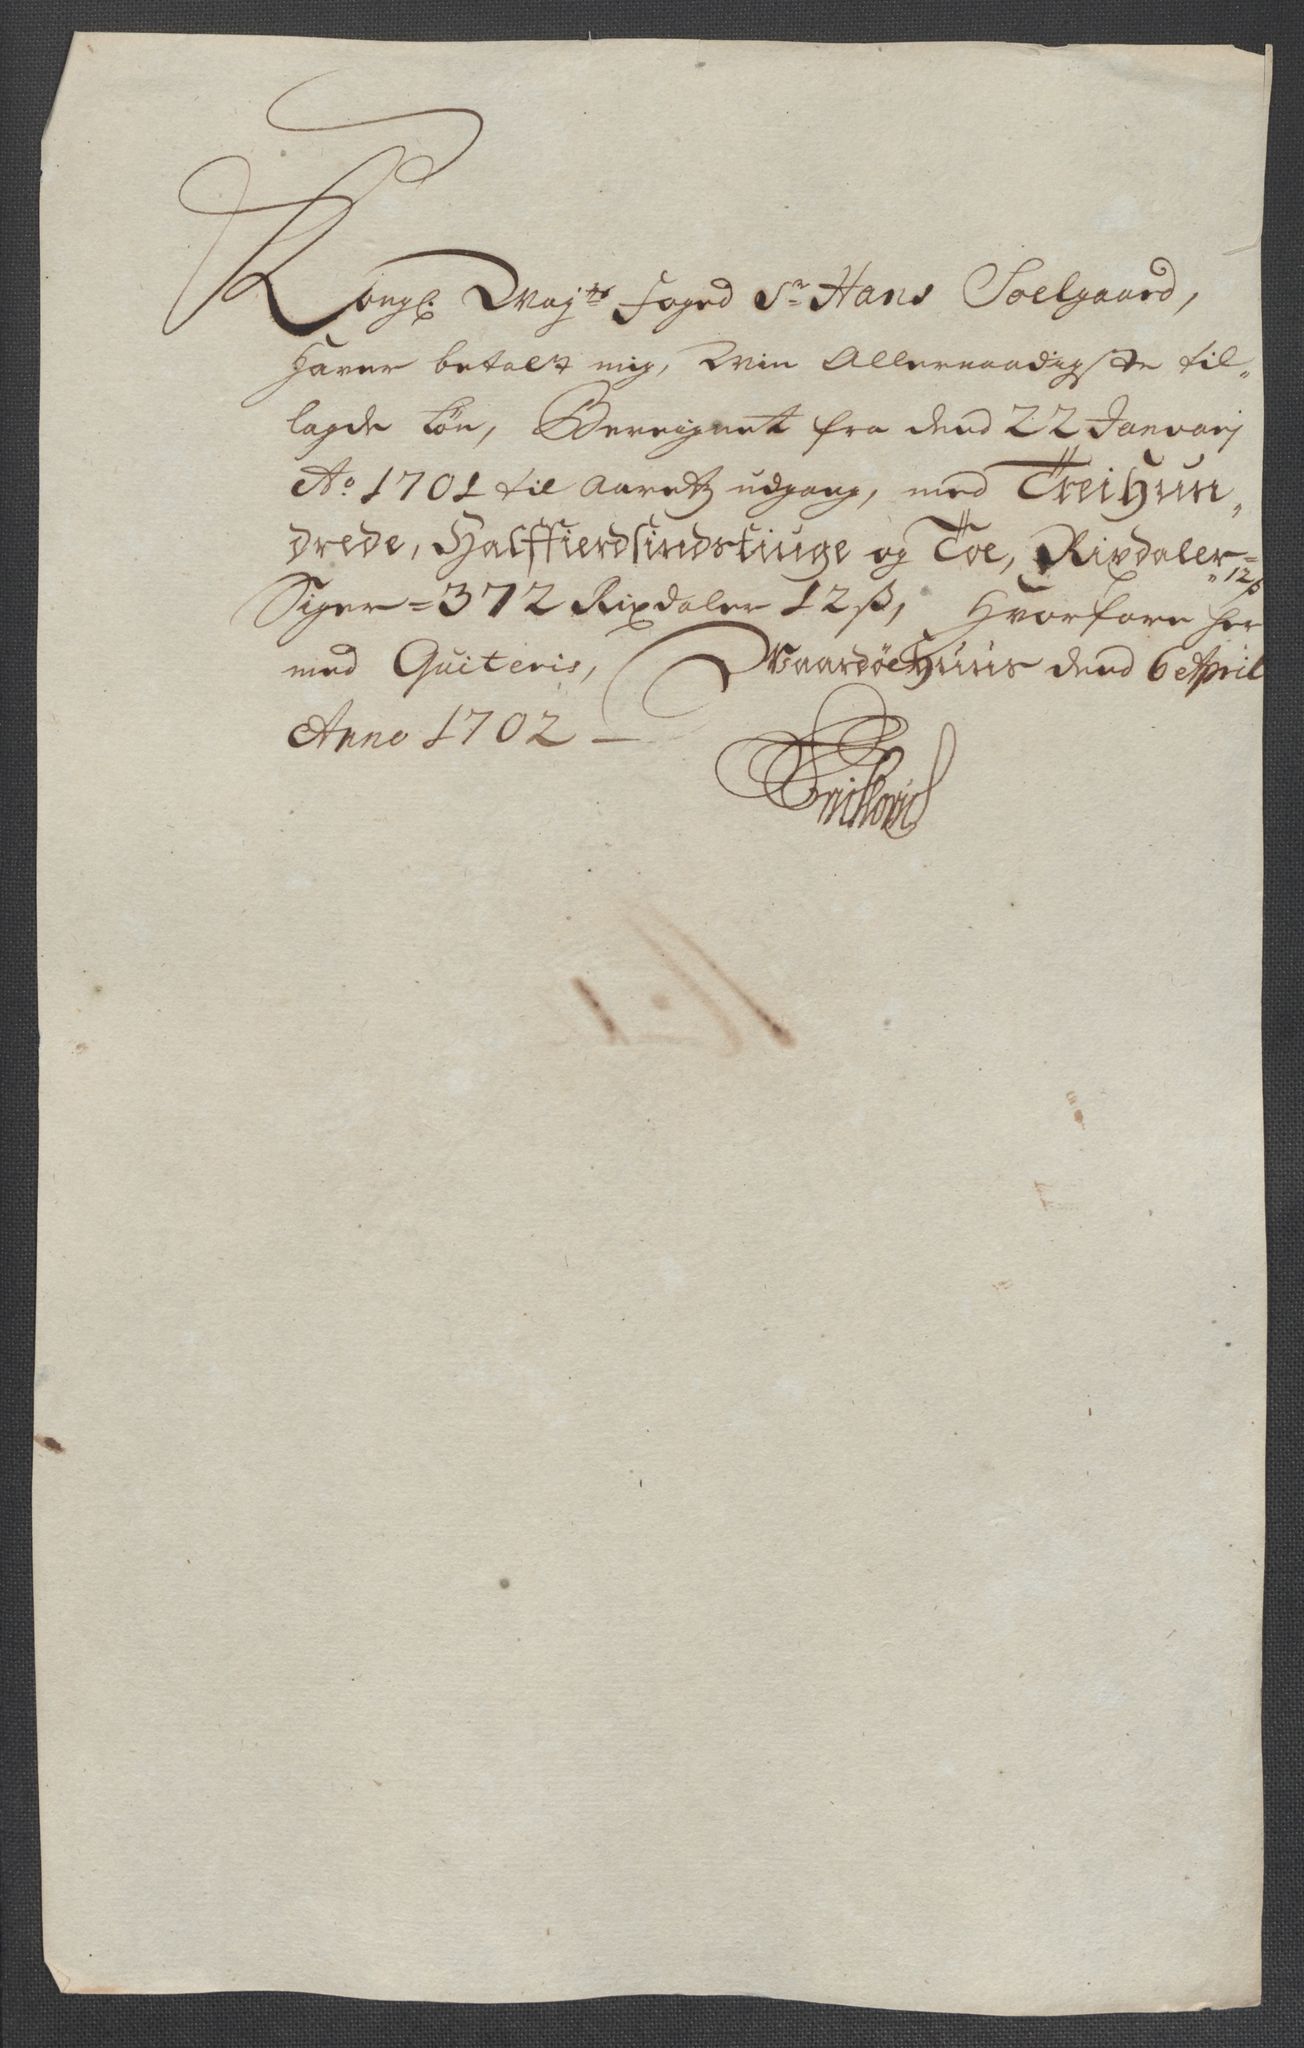 Kongl. Maj:ts foged Sr. Hans Soelgaard,
Hafver betalt mig, Min Allernaadigste til-
lagde Løn, Bereignet fra dend 22 Januarj
Ao 1701 til Aaretz udgang, med TreiHun-
drede, Halffierdsindstiuge og Toe, Rixdaler=
12ß
Siger=372 Rixdaler 12ß, Hvorfore her
med Quiteris, WaardøeHuus dend 6 April
Anno 1702